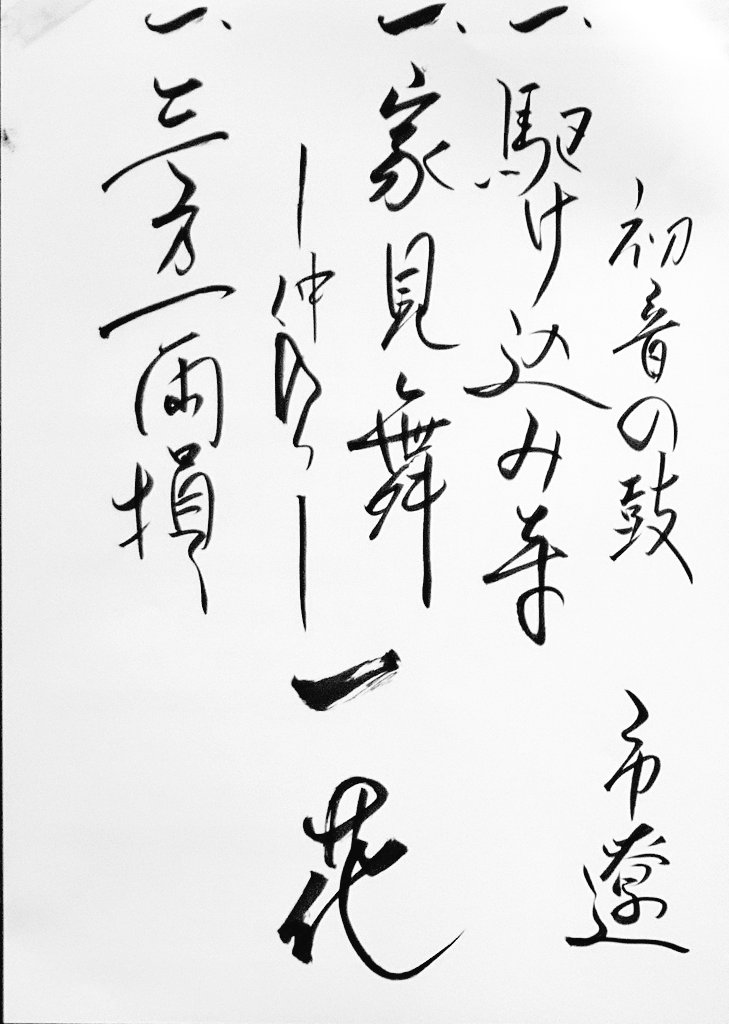 初音の鼓 市遼
一、駆け込み寺
一、家見舞 一花
ー仲入りー
一、三方一両損